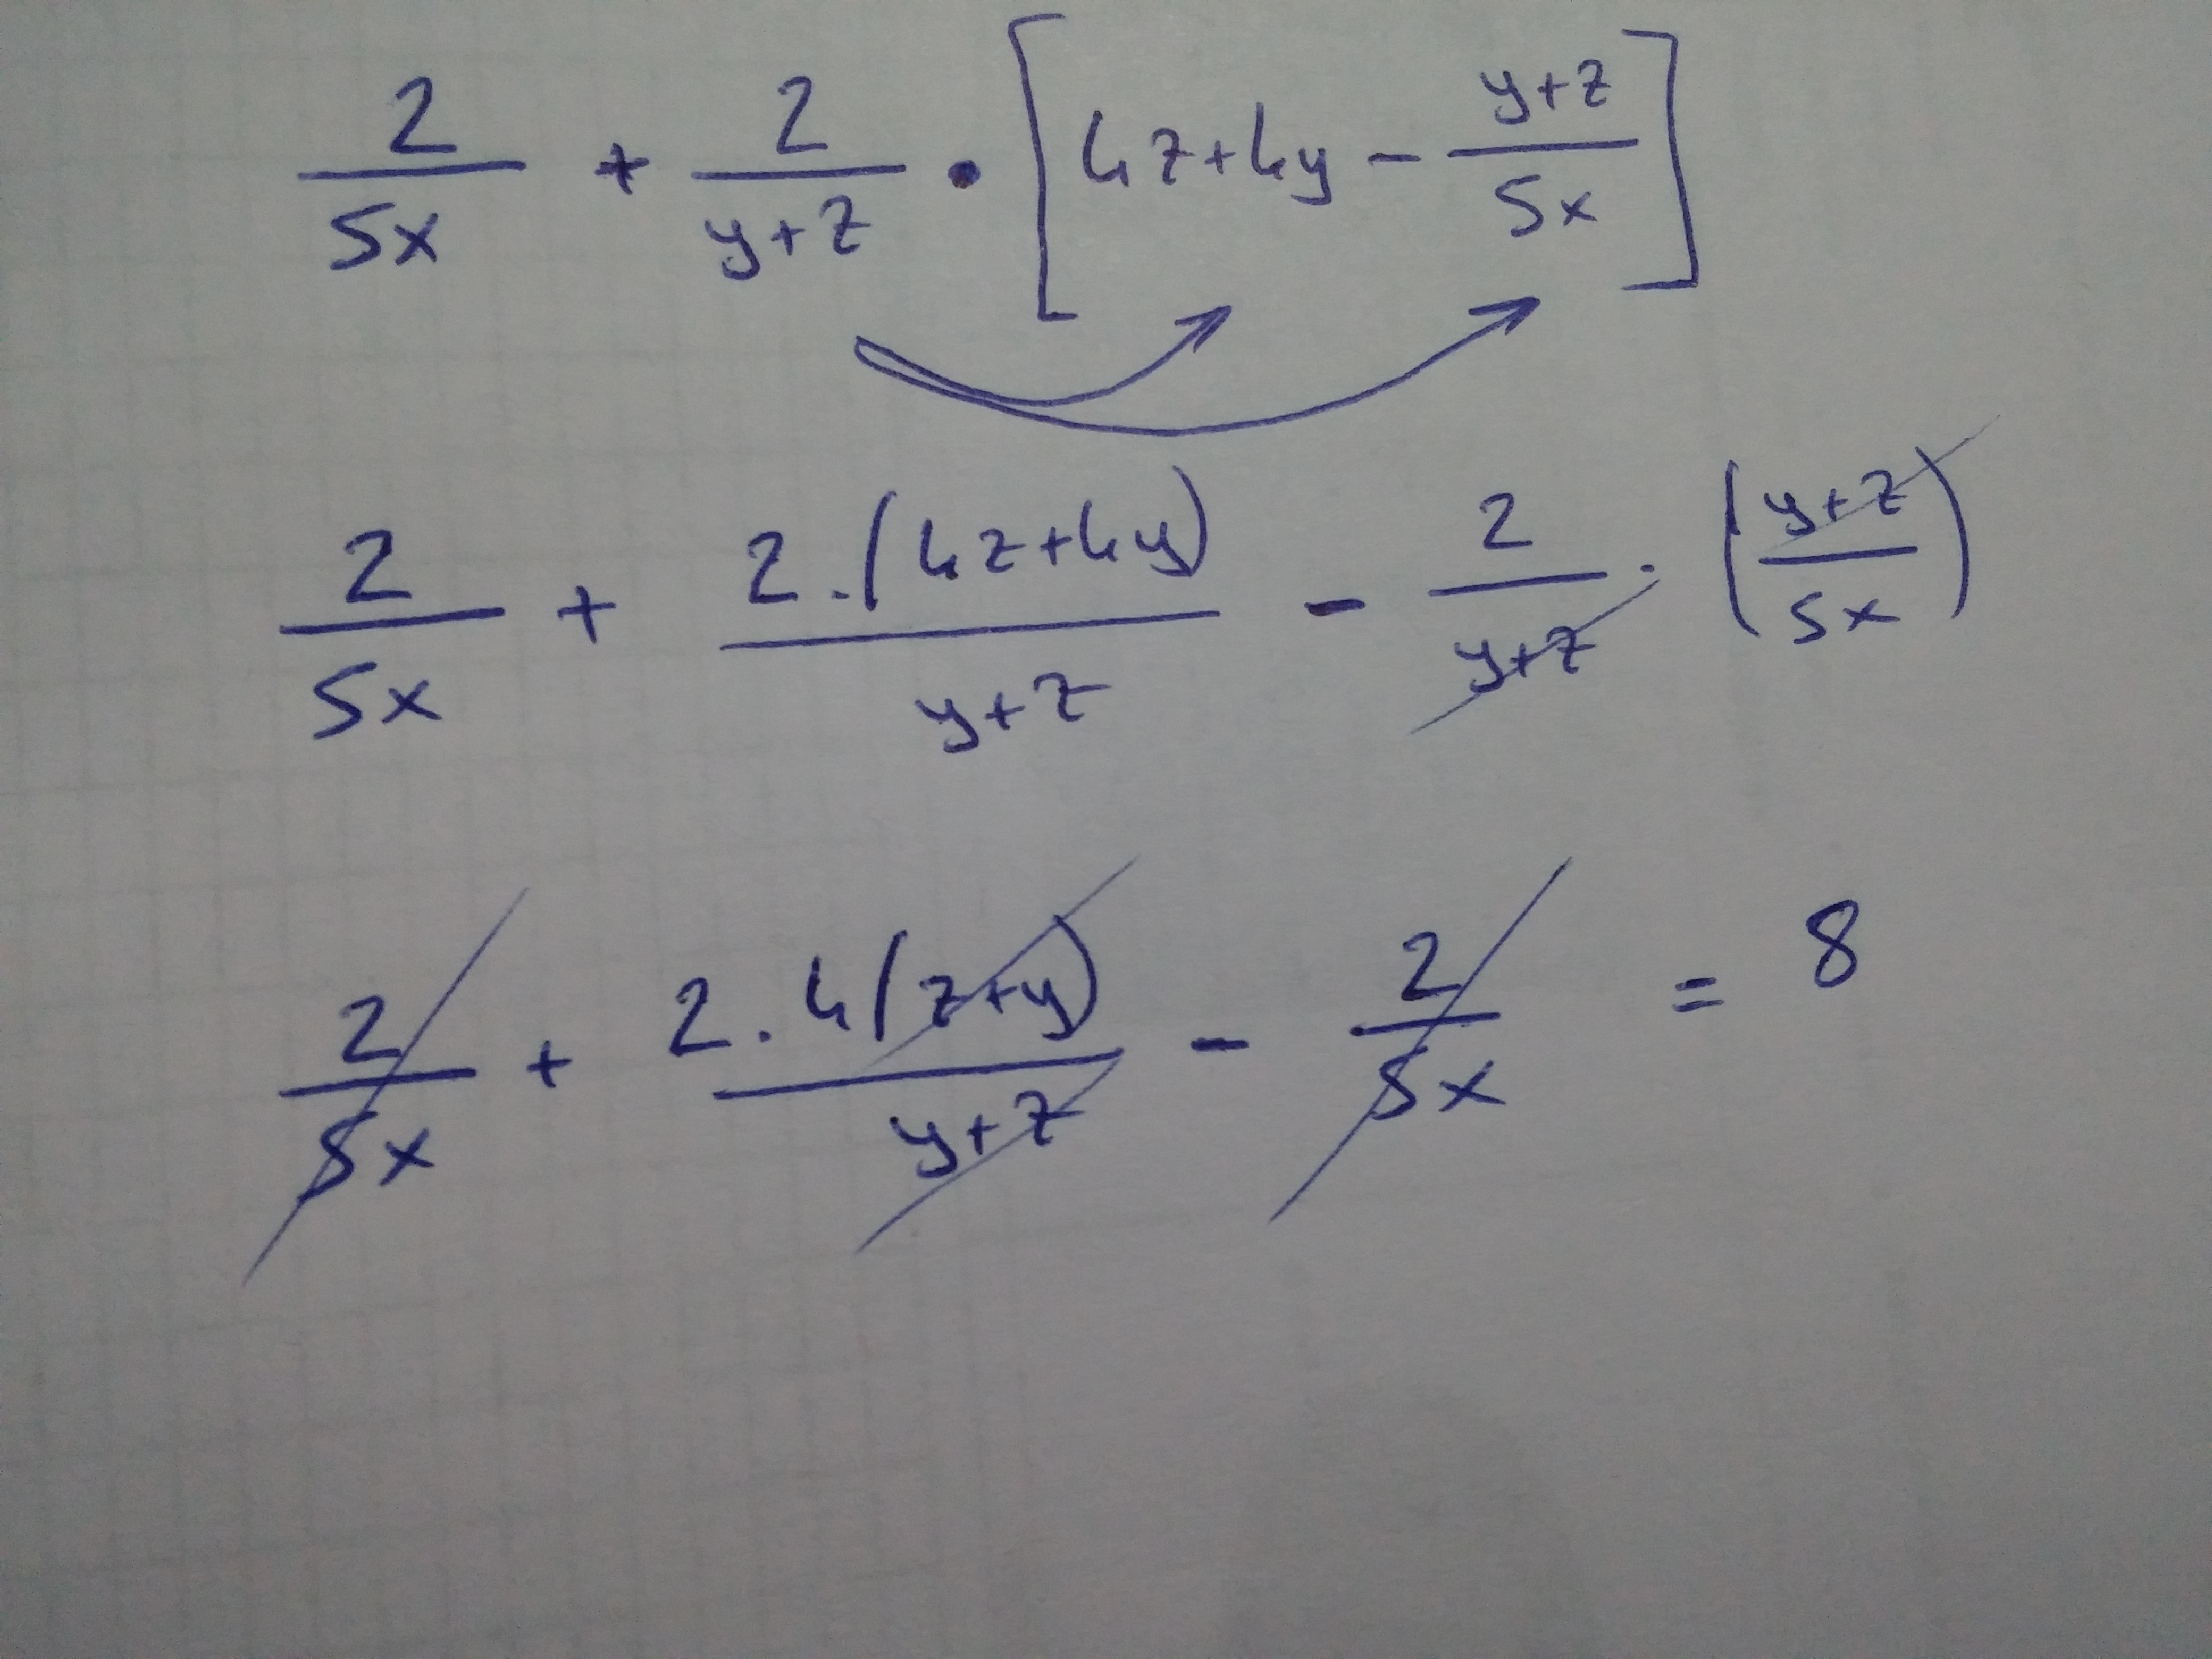 2/5x + 2/y+z • [4z+4y - y+z/5x]
2/5x + 2.(4z+4y)/y+z - 2/y+z . (y+z/5x)
2/5x + 2.4(z+y)/y+z - 2/5x = 8